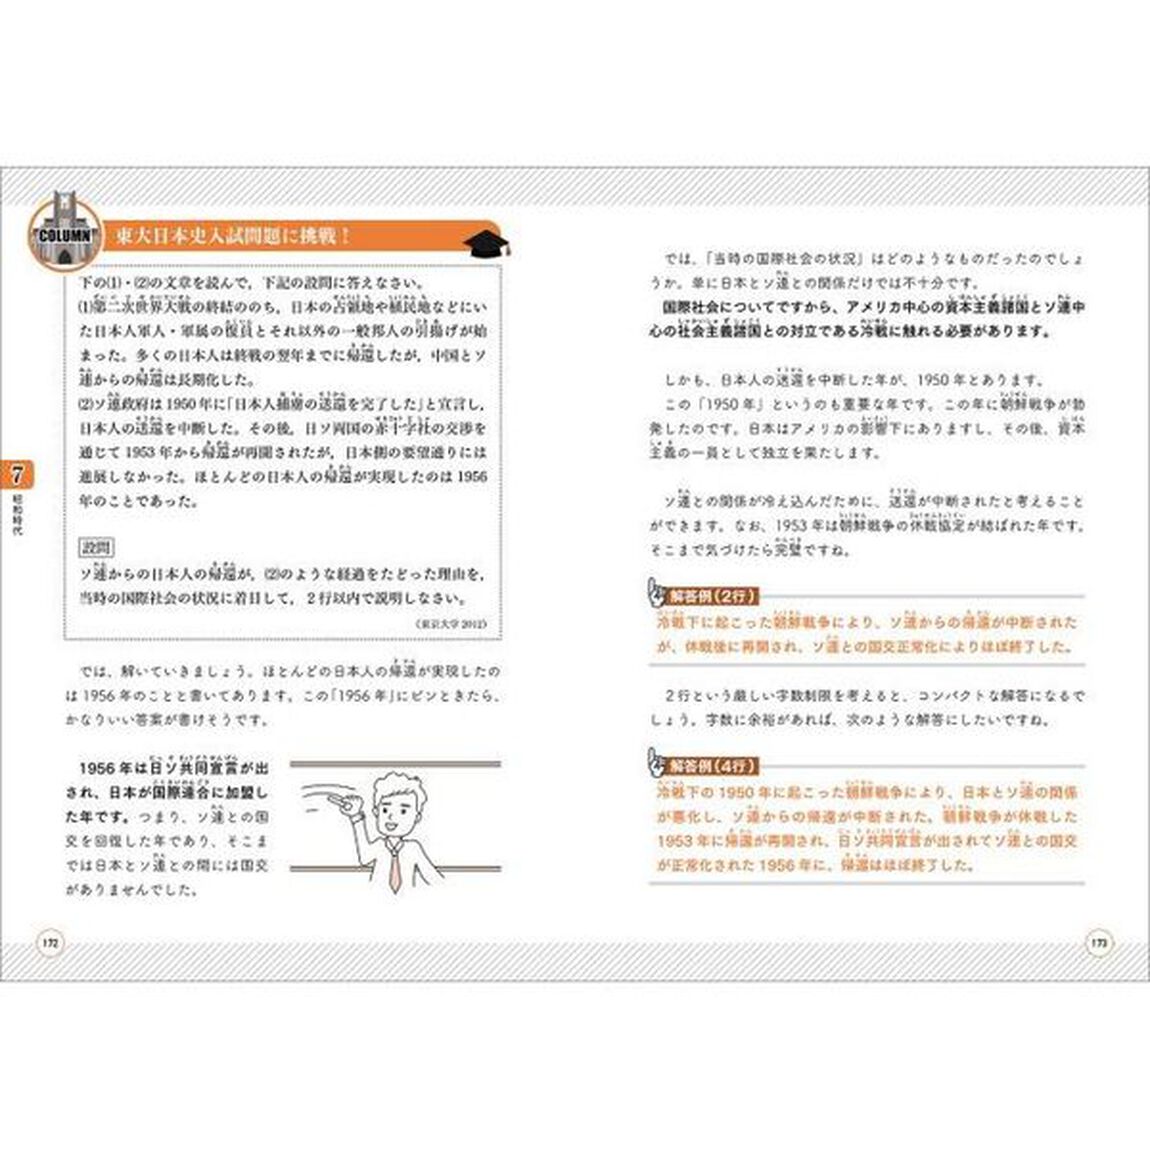 COLUMN
東大日本史入試問題に挑戦！
下の(1)・(2)の文章を読んで，下記の設問に答えなさい。
(1)第二次世界大戦の終結ののち，日本の占領地や植民地などにい
た日本人軍人・軍属の復員とそれ以外の一般邦人の引揚げが始
まった。多くの日本人は終戦の翌年までに帰還したが，中国とソ
連からの帰還は長期化した。
(2)ソ連政府は1950年に「日本人捕虜の送還を完了した」と宣言し，
日本人の送還を中断した。その後，日ソ両国の赤十字社の交渉を
通じて1953年から帰還が再開されたが，日本側の要望通りには
進展しなかった。ほとんどの日本人の帰還が実現したのは1956
年のことであった。
設問
ソ連からの日本人の帰還が，(2)のような経過をたどった理由を，
当時の国際社会の状況に着目して，2行以内で説明しなさい。
（東京大学 2012）
では、解いていきましょう。ほとんどの日本人の帰還が実現したの
は1956年のことと書いてあります。この「1956年」にピンときたら、
かなりいい答案が書けそうです。
1956年は日ソ共同宣言が出
され、日本が国際連合に加盟し
た年です。つまり、ソ連との国
交を回復した年であり、そこま
では日本とソ連との間には国交
がありませんでした。
7
昭和時代
172
では、「当時の国際社会の状況」はどのようなものだったのでしょ
うか。単に日本とソ連との関係だけでは不十分です。
国際社会についてですから、アメリカ中心の資本主義諸国とソ連中
心の社会主義諸国との対立である冷戦に触れる必要があります。
しかも、日本人の送還を中断した年が、1950年とあります。
この「1950年」というのも重要な年です。この年に朝鮮戦争が勃
発したのです。日本はアメリカの影響下にありますし、その後、資本
主義の一員として独立を果たします。
ソ連との関係が冷え込んだために、送還が中断されたと考えること
ができます。なお、1953年は朝鮮戦争の休戦協定が結ばれた年です。
そこまで気づけたら完璧ですね。
解答例（2行）
冷戦下に起こった朝鮮戦争により、ソ連からの帰還が中断された
が、休戦後に再開され、ソ連との国交正常化によりほぼ終了した。
2行という厳しい字数制限を考えると、コンパクトな解答になるで
しょう。字数に余裕があれば、次のような解答にしたいですね。
解答例（4行）
冷戦下の1950年に起こった朝鮮戦争により、日本とソ連の関係
が悪化し、ソ連からの帰還が中断された。朝鮮戦争が休戦した
1953年に帰還が再開され、日ソ共同宣言が出されてソ連との国交
が正常化された1956年に、帰還はほぼ終了した。
173